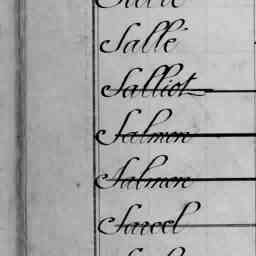 Sallé
Salliot
Salmon
Salmon
Sarcel